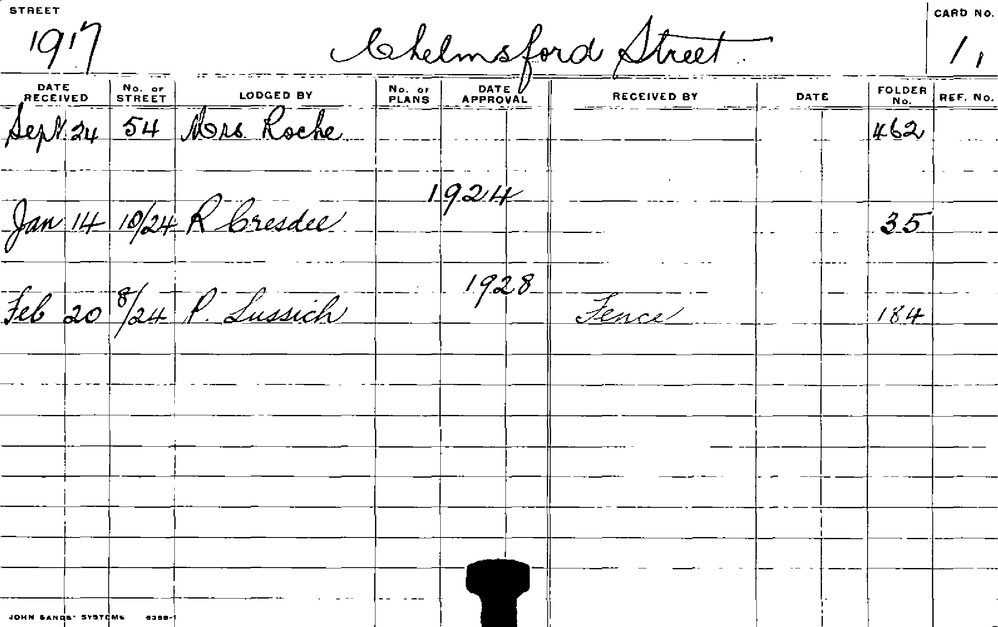 STREET
1917 Chelmsford Street. CARD No. 1,
DATE RECEIVED No. OF STREET LODGED BY No. OF PLANS DATE APPROVAL RECEIVED BY DATE FOLDER No. REF. No.
Sept. 24 54 Mrs Roche 462
1924
Jan 14 10/24 R Cresdee 35
1928
Feb 20 8/24 P. Lussich Fence 184
JOHN SANDS' SYSTEMS 6398-1